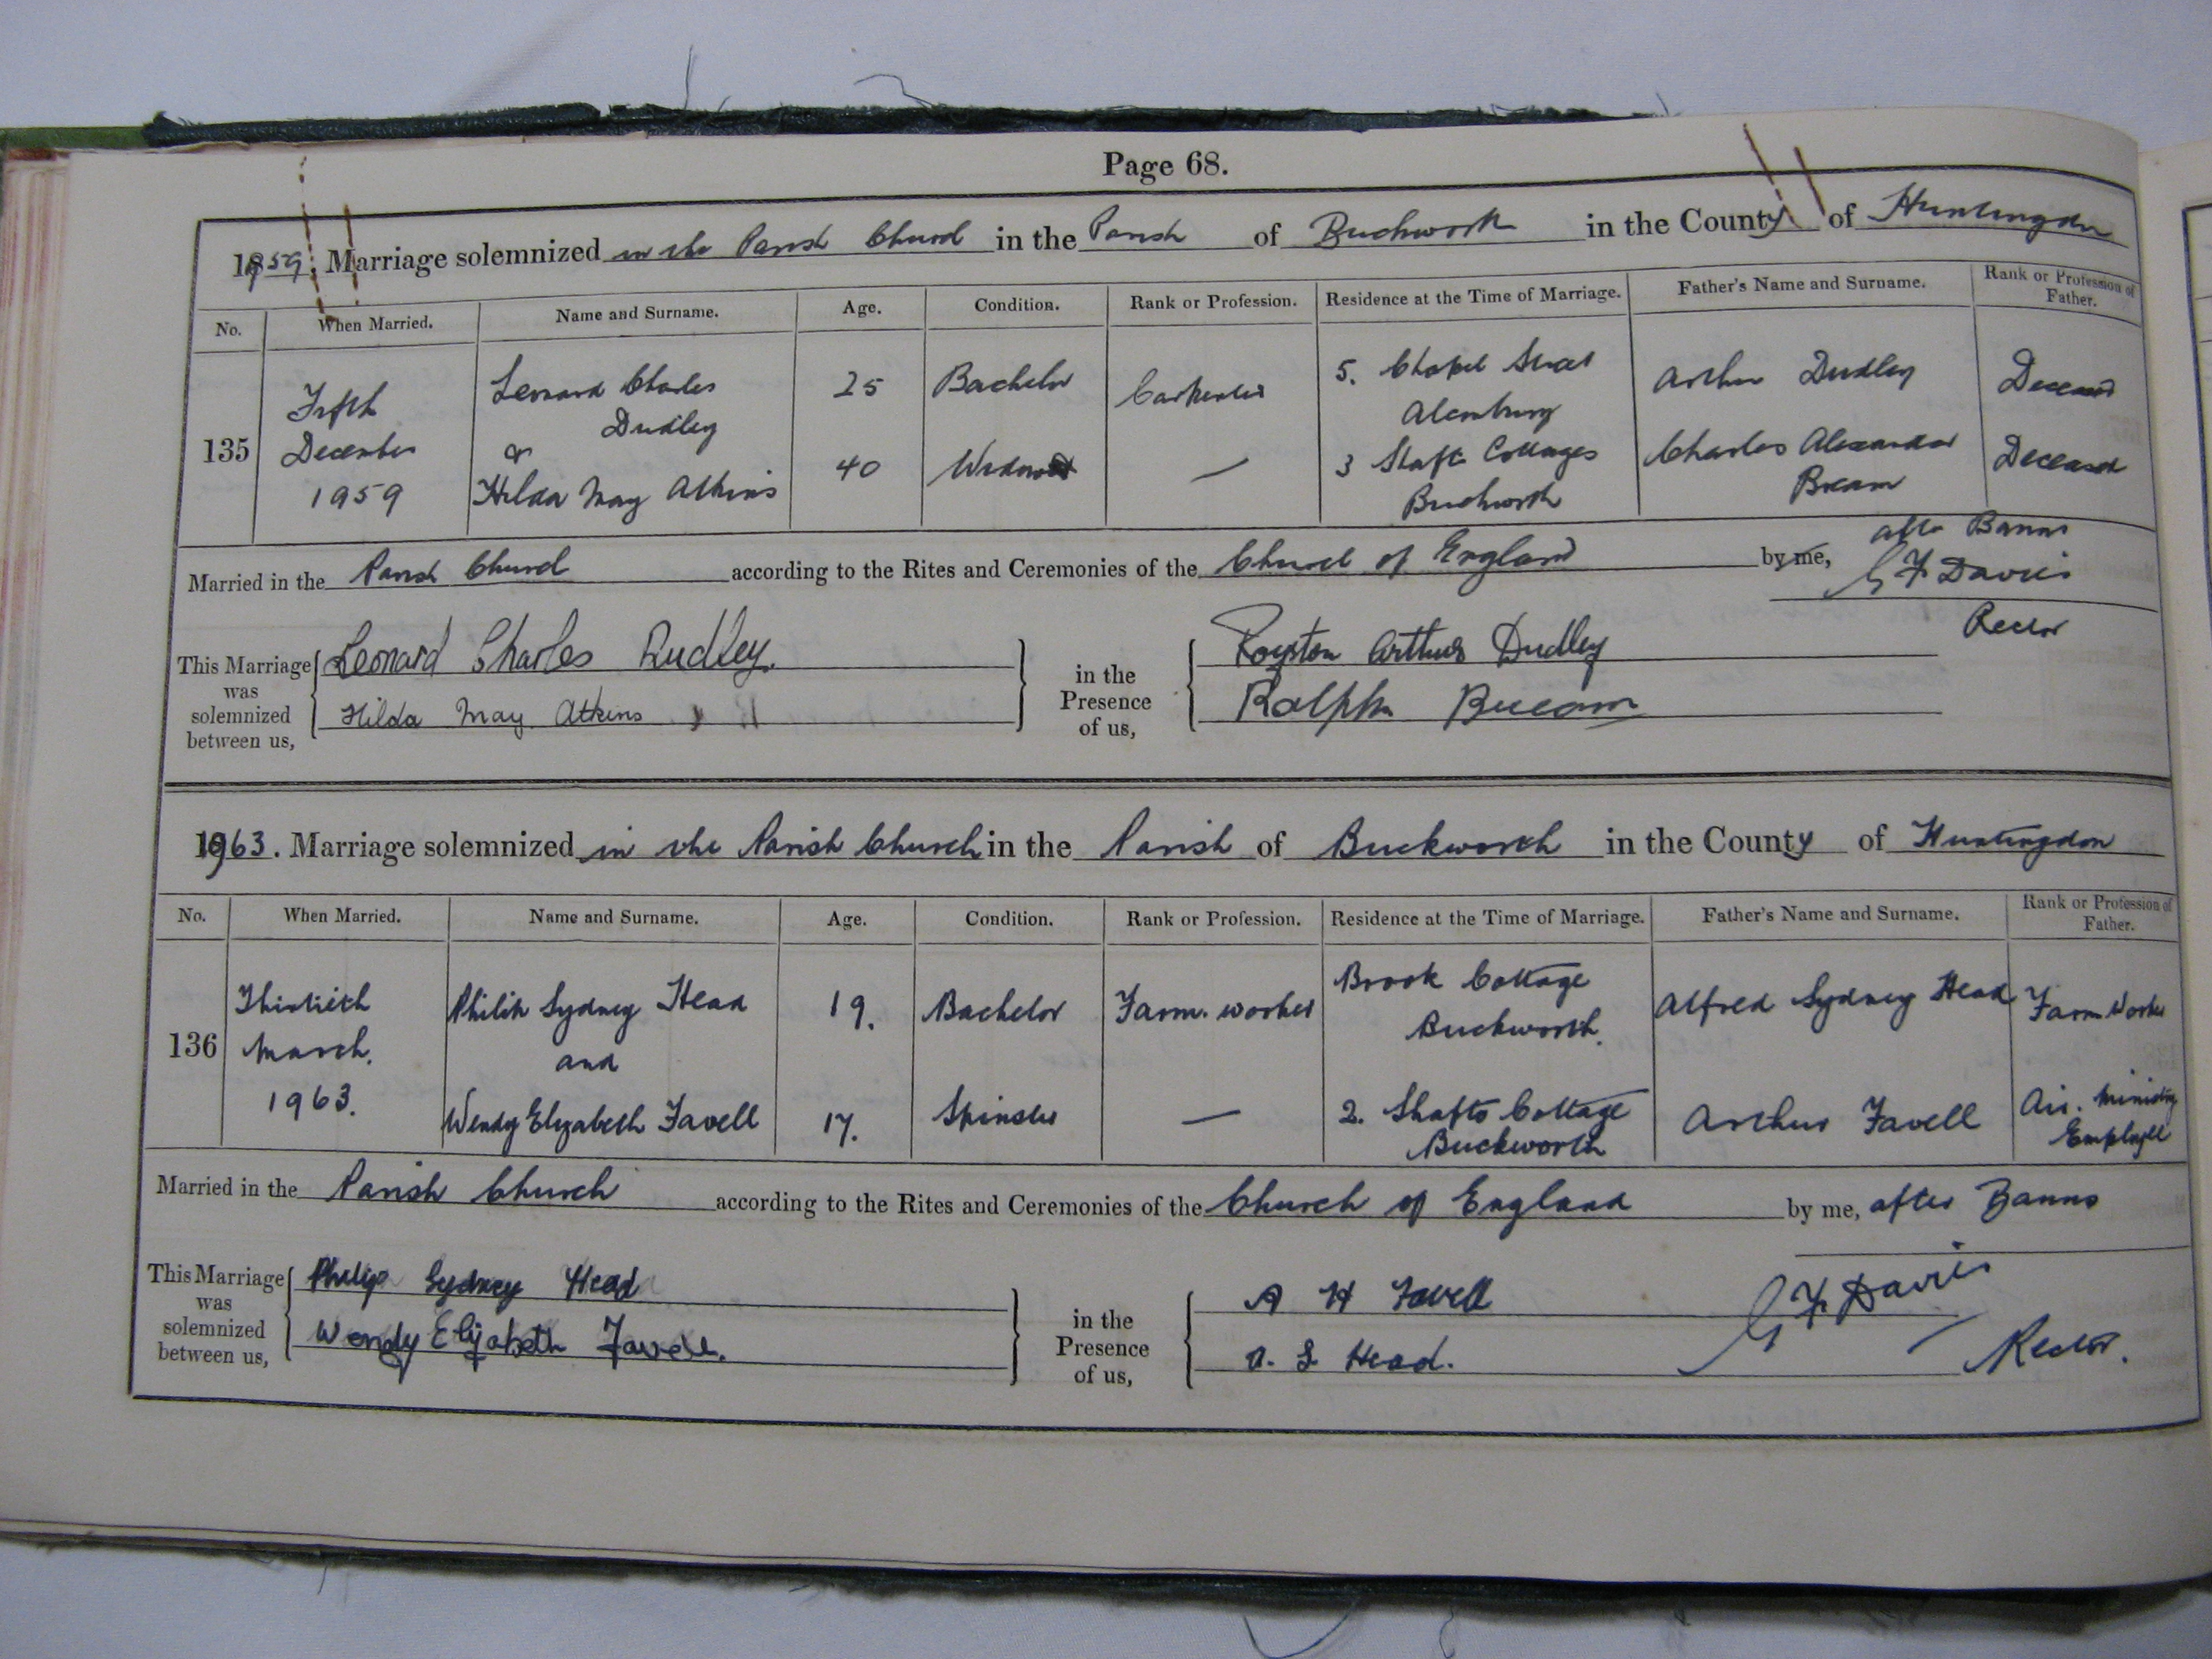 Page 68.
1959. Marriage solemnized in the Parish Church in the Parish of Buckworth in the County of Huntingdon
No. When Married. Name and Surname. Age. Condition. Rank or Profession. Residence at the Time of Marriage. Father's Name and Surname. Rank or Profession of Father.
135 Fifth December 1959 Leonard Charles Dudley 25 Bachelor Carpenter 5. Chapel Street Alconbury Arthur Dudley Deceased
& Hilda May Atkins 40 Widow — 3 Shafts Cottages Buckworth Charles Alexander Deceased
Married in the Parish Church according to the Rites and Ceremonies of the Church of England by me, after Banns
G F Davies
Rector
This Marriage was solemnized between us, Leonard Charles Dudley. in the Presence of us, Royston Arthur Dudley
Hilda May Atkins Ralph
1963. Marriage solemnized in the Parish Church in the Parish of Buckworth in the County of Huntingdon
No. When Married. Name and Surname. Age. Condition. Rank or Profession. Residence at the Time of Marriage. Father's Name and Surname. Rank or Profession of Father.
136 Thirtieth March. 1963. Philip Sydney Head 19. Bachelor Farm. worker Brook Cottage Buckworth. Alfred Sydney Head Farm Worker
and Wendy Elizabeth Favell 17. Spinster — 2. Shafts Cottage Buckworth Arthur Favell Air. Ministry Employee
Married in the Parish Church according to the Rites and Ceremonies of the Church of England by me, after Banns
This Marriage was solemnized between us, Philip Sydney Head in the Presence of us, A H Favell G F Davies
Wendy Elizabeth Favell. A. S Head. Rector.